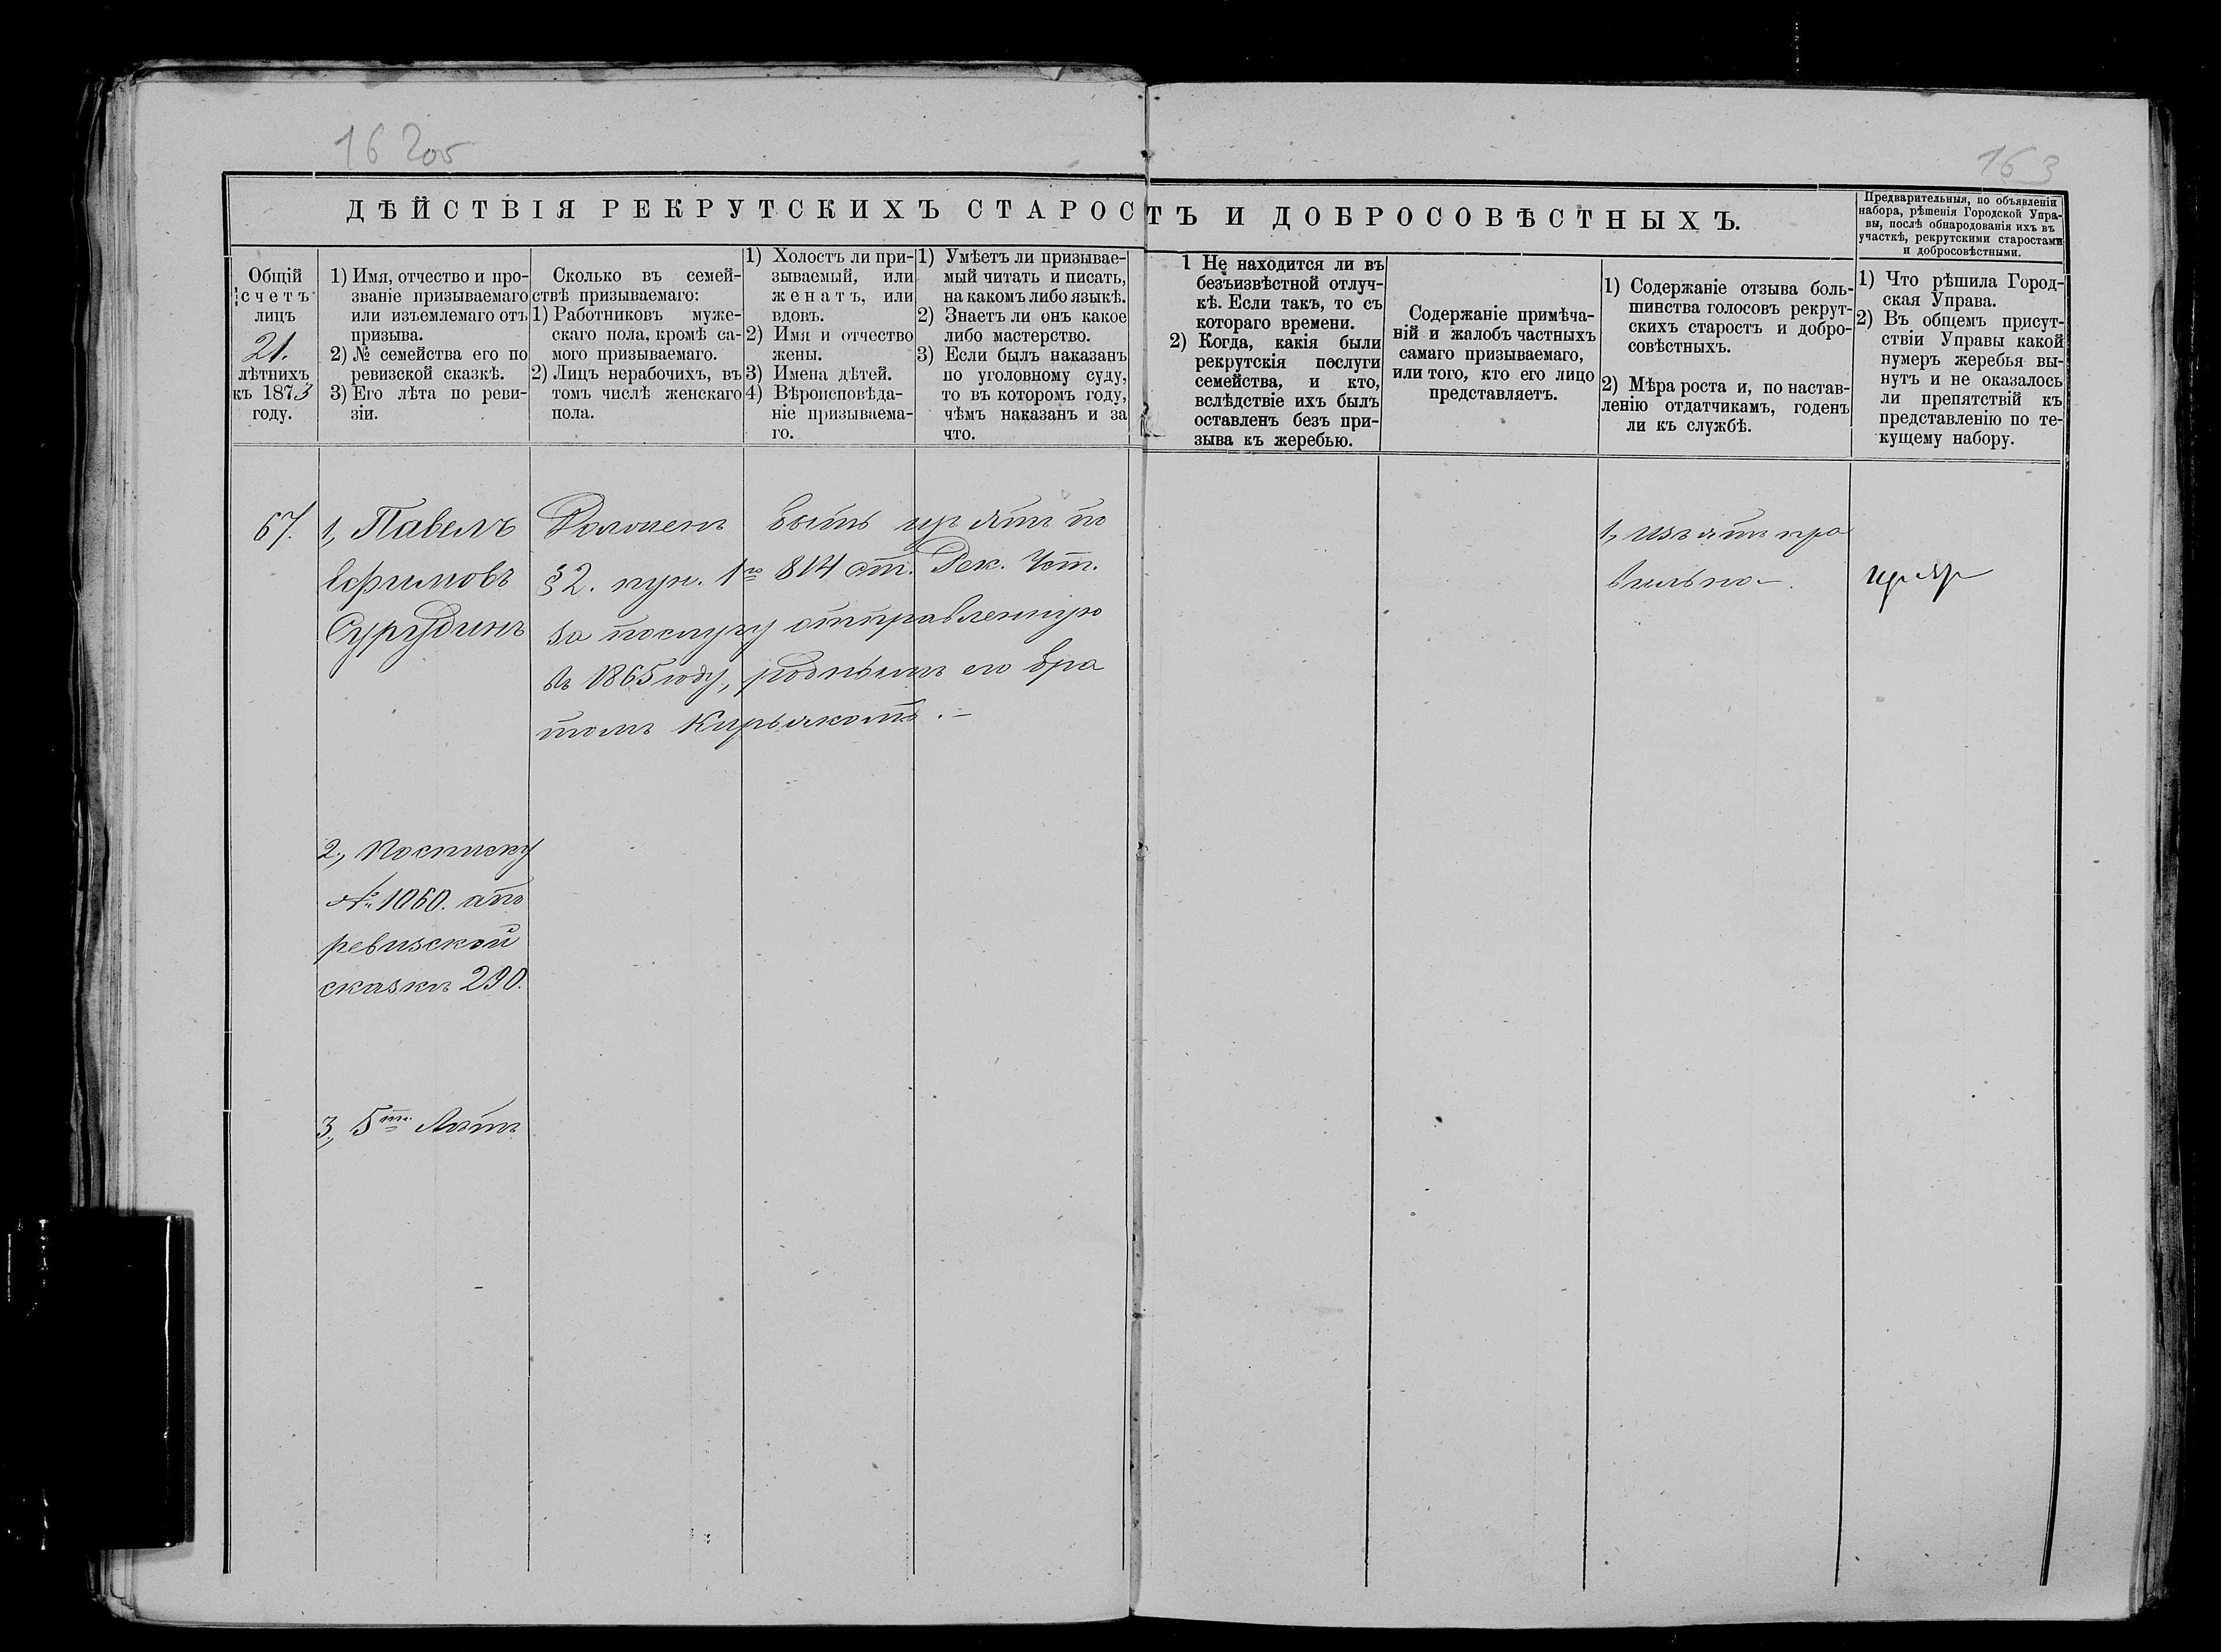 16 205
163
ДѢЙСТВІЯ РЕКРУТСКИХЪ СТАРОСТЪ И ДОБРОСОВѢСТНЫХЪ.
Предварительныя, по объявленіи
набора, рѣшенія Городской Упра-
вы, послѣ обнародованія ихъ въ
участкѣ, рекрутскими старостами
и добросовѣстными.
Общій
счетъ
лицъ
21.
лѣтнихъ
къ 1873
году.
1) Имя, отчество и про-
званіе призываемаго
или изъемлемаго отъ
призыва.
2) № семейства его по
ревизской сказкѣ.
3) Его лѣта по реви-
зіи.
Сколько въ семей-
ствѣ призываемаго:
1) Работниковъ муже-
скаго пола, кромѣ са-
мого призываемаго.
2) Лицъ нерабочихъ, въ
томъ числѣ женскаго
пола.
1) Холостъ ли при-
зываемый, или
женатъ, или
вдовъ.
2) Имя и отчество
жены.
3) Имена дѣтей.
4) Вѣроисповѣда-
ніе призываема-
го.
1) Умѣетъ ли призывае-
мый читать и писать,
на какомъ либо языкѣ.
2) Знаетъ ли онъ какое
либо мастерство.
3) Если былъ наказанъ
по уголовному суду,
то въ которомъ году,
чѣмъ наказанъ и за
что.
1 Не находится ли въ
безъизвѣстной отлуч-
кѣ. Если такъ, то съ
котораго времени.
2) Когда, какія были
рекрутскія послуги
семейства, и кто,
вслѣдствіе ихъ былъ
оставленъ безъ при-
зыва къ жеребью.
Содержаніе примѣча-
ній и жалобъ частныхъ
самаго призываемаго,
или того, кто его лицо
представляетъ.
1) Содержаніе отзыва боль-
шинства голосовъ рекрут-
скихъ старостъ и добро-
совѣстныхъ.
2) Мѣра роста и, по настав-
ленію отдатчикамъ, годенъ
ли къ службѣ.
1) Что рѣшила Город-
ская Управа.
2) Въ общемъ присут-
ствіи Управы какой
нумеръ жеребья вы-
нутъ и не оказалось
ли препятствій къ
представленію по те-
кущему набору.
67.
1, Павелъ
Ефимовъ
2, По списку
№ 1060. а по
ревизской
сказкѣ 290.
3, 5ти Лѣтъ
Долженъ быть изъятъ по
§ 2. пун. 1го 814 ст. Рек. Уст.
за послугу отправленную
въ 1865 году, роднымъ его бра
томъ Кирьякомъ.—
1, изъятъ пра
вильно—.